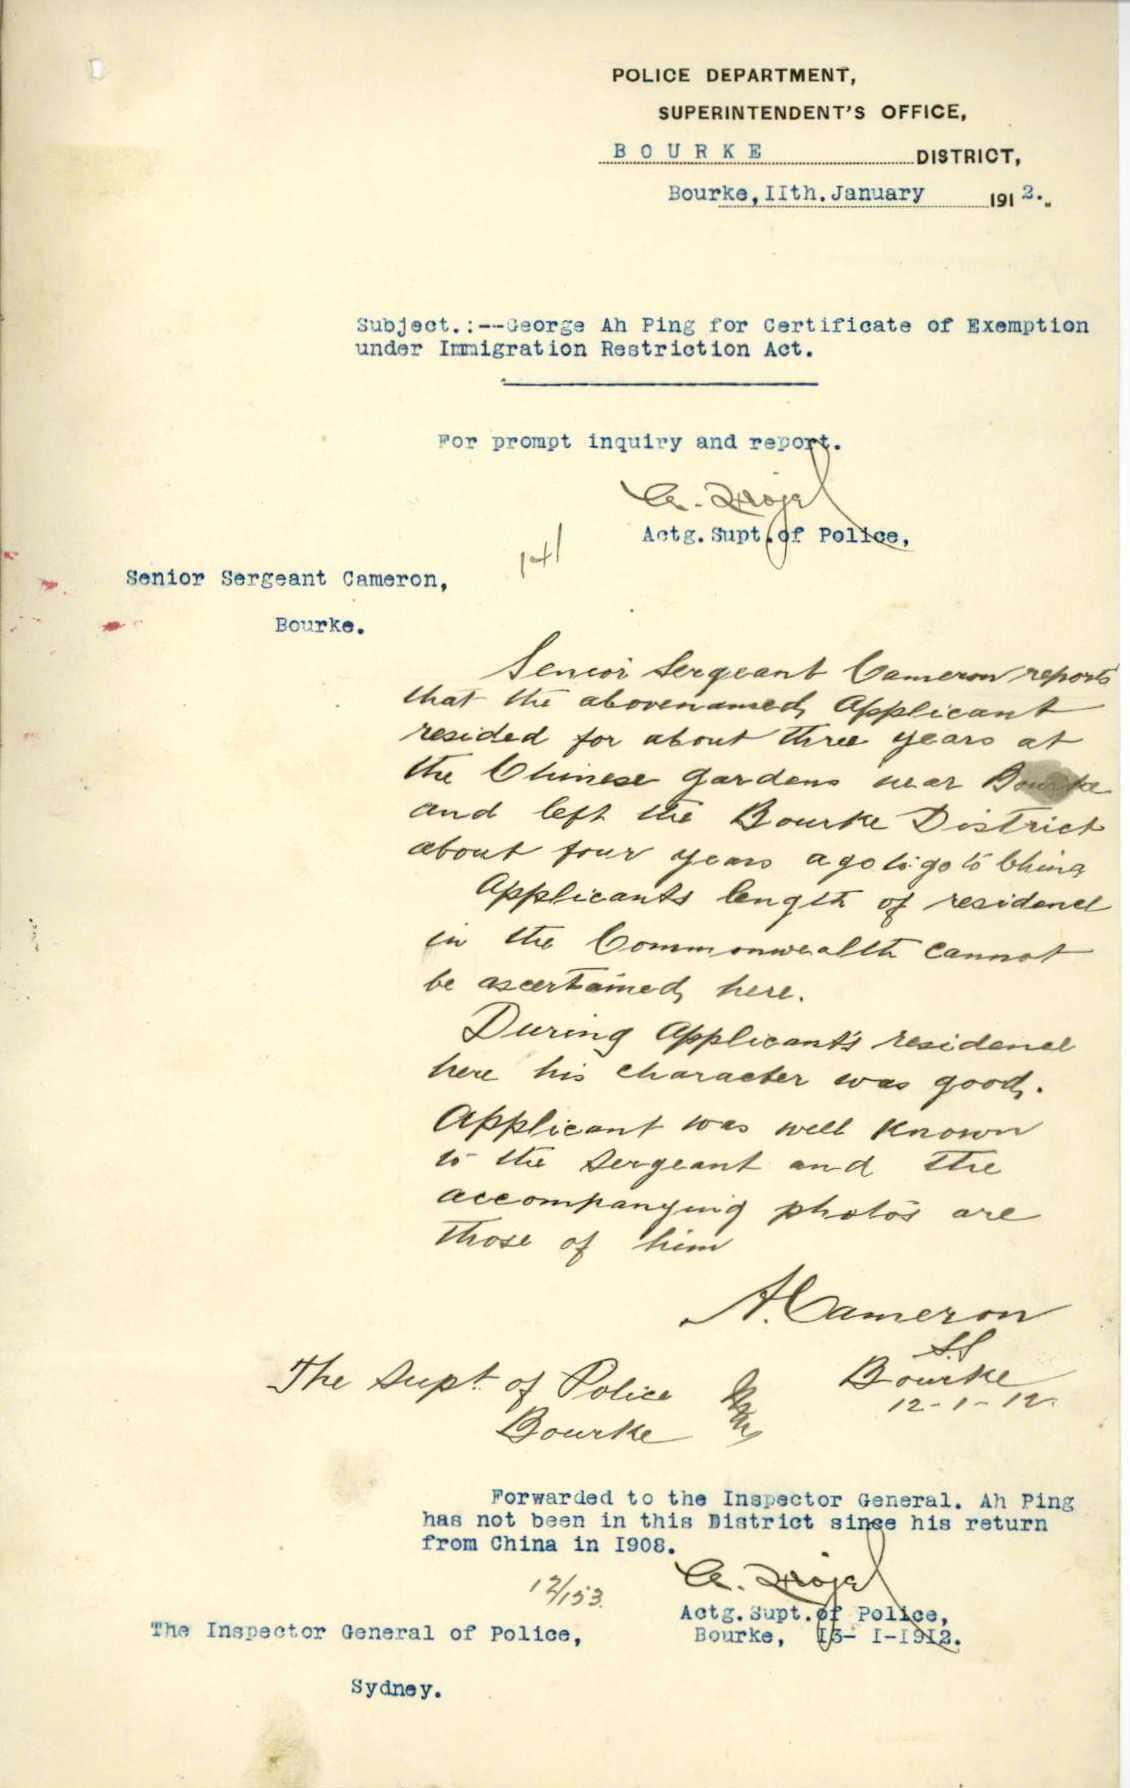 POLICE DEPARTMENT,
SUPERINTENDENT'S OFFICE,
BOURKE DISTRICT,
Bourke, IIth. January 1912.
Subject.:--George Ah Ping for Certificate of Exemption
under Immigration Restriction Act.
For prompt inquiry and report.
Actg. Supt. of Police,
Senior Sergeant Cameron,
Bourke.
Senior Sergeant Cameron reports
that the abovenamed Applicant
resided for about three years at
the Chinese gardens near Bourke
and left the Bourke District
about four years ago to go to China
Applicants length of residence
in the Commonwealth cannot
be ascertained here.
During Applicant's residence
here his character was good.
Applicant was well known
to the Sergeant and the
accompanying photos are
those of him
A. Cameron
S.S
The Supt. of Police Bourke
Bourke 12-1-12.
Forwarded to the Inspector General. Ah Ping
has not been in this District since his return
from China in I908.
12/153.
Actg. Supt. of Police,
The Inspector General of Police, Bourke, I3- I-I9I2.
Sydney.